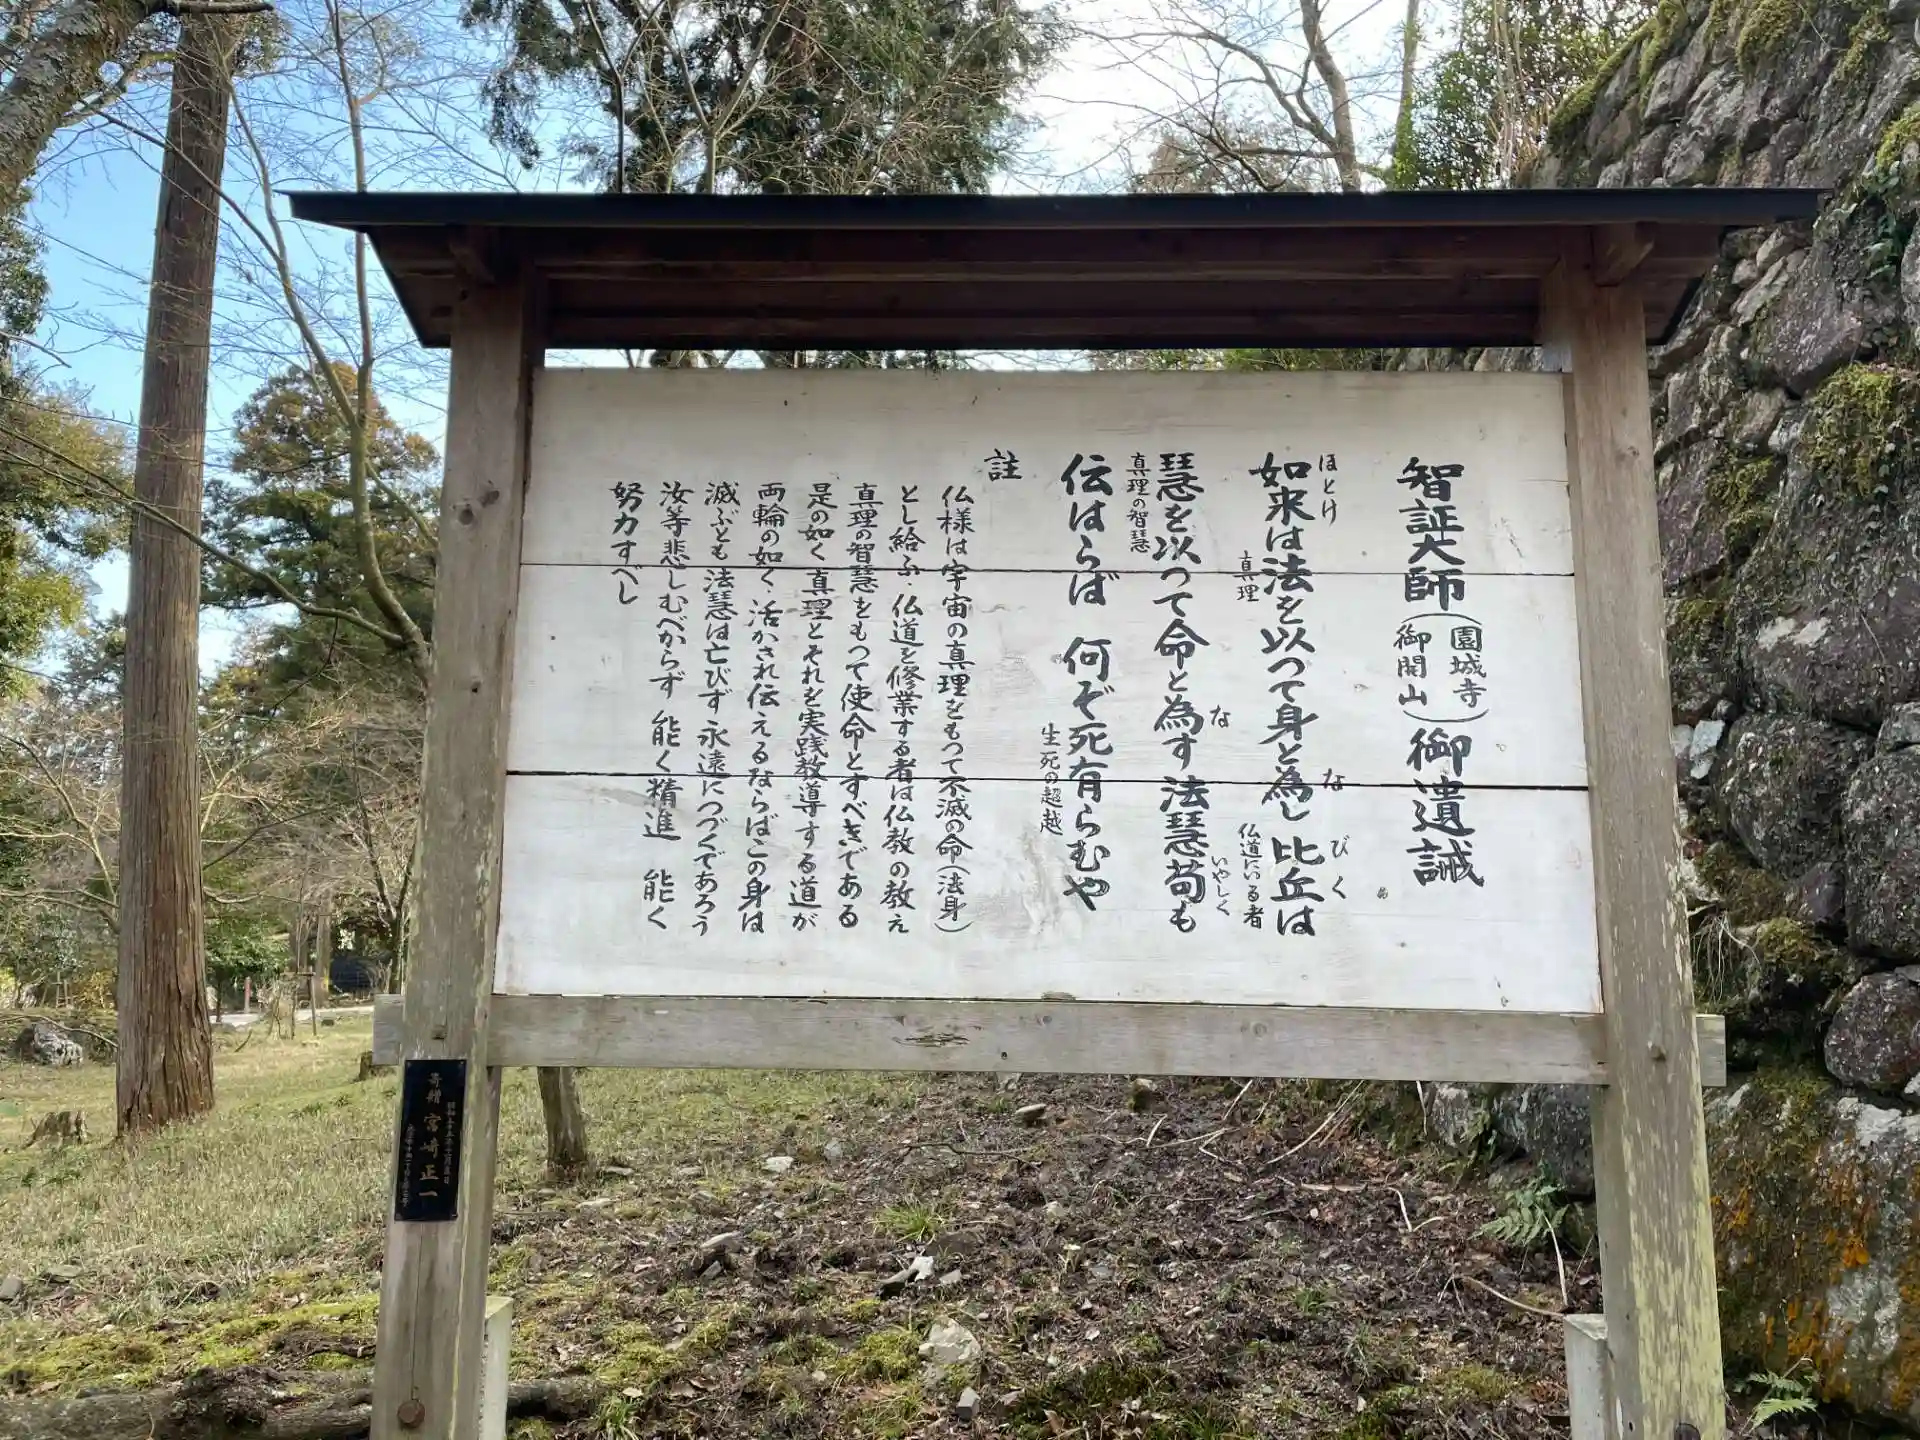 智証大師(園城寺御開山)御遺誡
ほとけ
如来は法を以つて身と為し 比丘は
な
びく
真理
仏道にいる者
慧を以つて命と為す 法慧苟も
な
いやしく
真理の智慧
伝はらば 何ぞ死有らむや
生死の超越
註
仏様は宇宙の真理をもつて不滅の命(法身)
とし給ふ・仏道を修業する者は仏教の教え
真理の智慧をもつて使命とすべきである
是の如く真理とそれを実践教導する道が
両輪の如く・活かされ伝えるならばこの身は
滅ぶとも 法慧は亡びず 永遠につづくであろう
汝等悲しむべからず 能く精進 能く
努力すべし
寄贈 宮崎正一